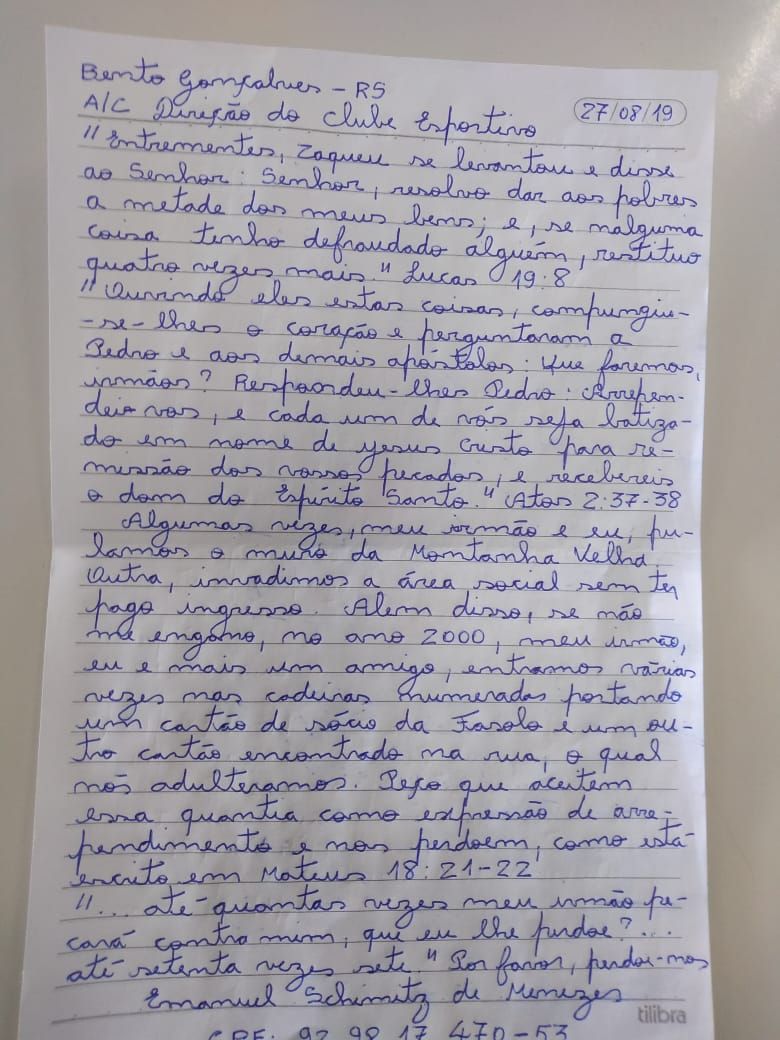 Bento Gonçalves - RS
27/08/19
A/C Direção do Clube Esportivo
"Entrementes, Zaqueu se levantou e disse
ao Senhor: Senhor, resolvo dar aos pobres
a metade dos meus bens; e, se nalguma
coisa tenho defraudado alguém, restituo
quatro vezes mais." Lucas 19:8
"Ouvindo eles estas coisas, compungiu-
-se-lhes o coração e perguntaram a
Pedro e aos demais apóstolos: Que faremos,
irmãos? Respondeu-lhes Pedro: Arrepen-
dei-vos, e cada um de vós seja batiza-
do em nome de Jesus Cristo para re-
missão dos vossos pecados, e recebereis
o dom do Espírito Santo." Atos 2:37-38
Algumas vezes, meu irmão e eu, pu-
lamos o muro da Montanha Velha.
Outra, invadimos a área social sem ter
pago ingresso. Alem disso, se não
me engano, no ano 2000, meu irmão,
eu e mais um amigo, entramos várias
vezes nas cadeiras numeradas portando
um cartão de sócio da Fasolo e um ou-
tro cartão encontrado na rua, o qual
nós adulteramos. Peço que aceitem
essa quantia como expressão de arre-
pendimento e nos perdoem, como está
escrito em Mateus 18:21-22
"... até quantas vezes meu irmão pe-
cará contra mim, que eu lhe perdoe?...
até setenta vezes sete." Por favor, perdoi-nos
Emanuel Schimitz de Menezes
tilibra
CPF: 92 98 17 470-53